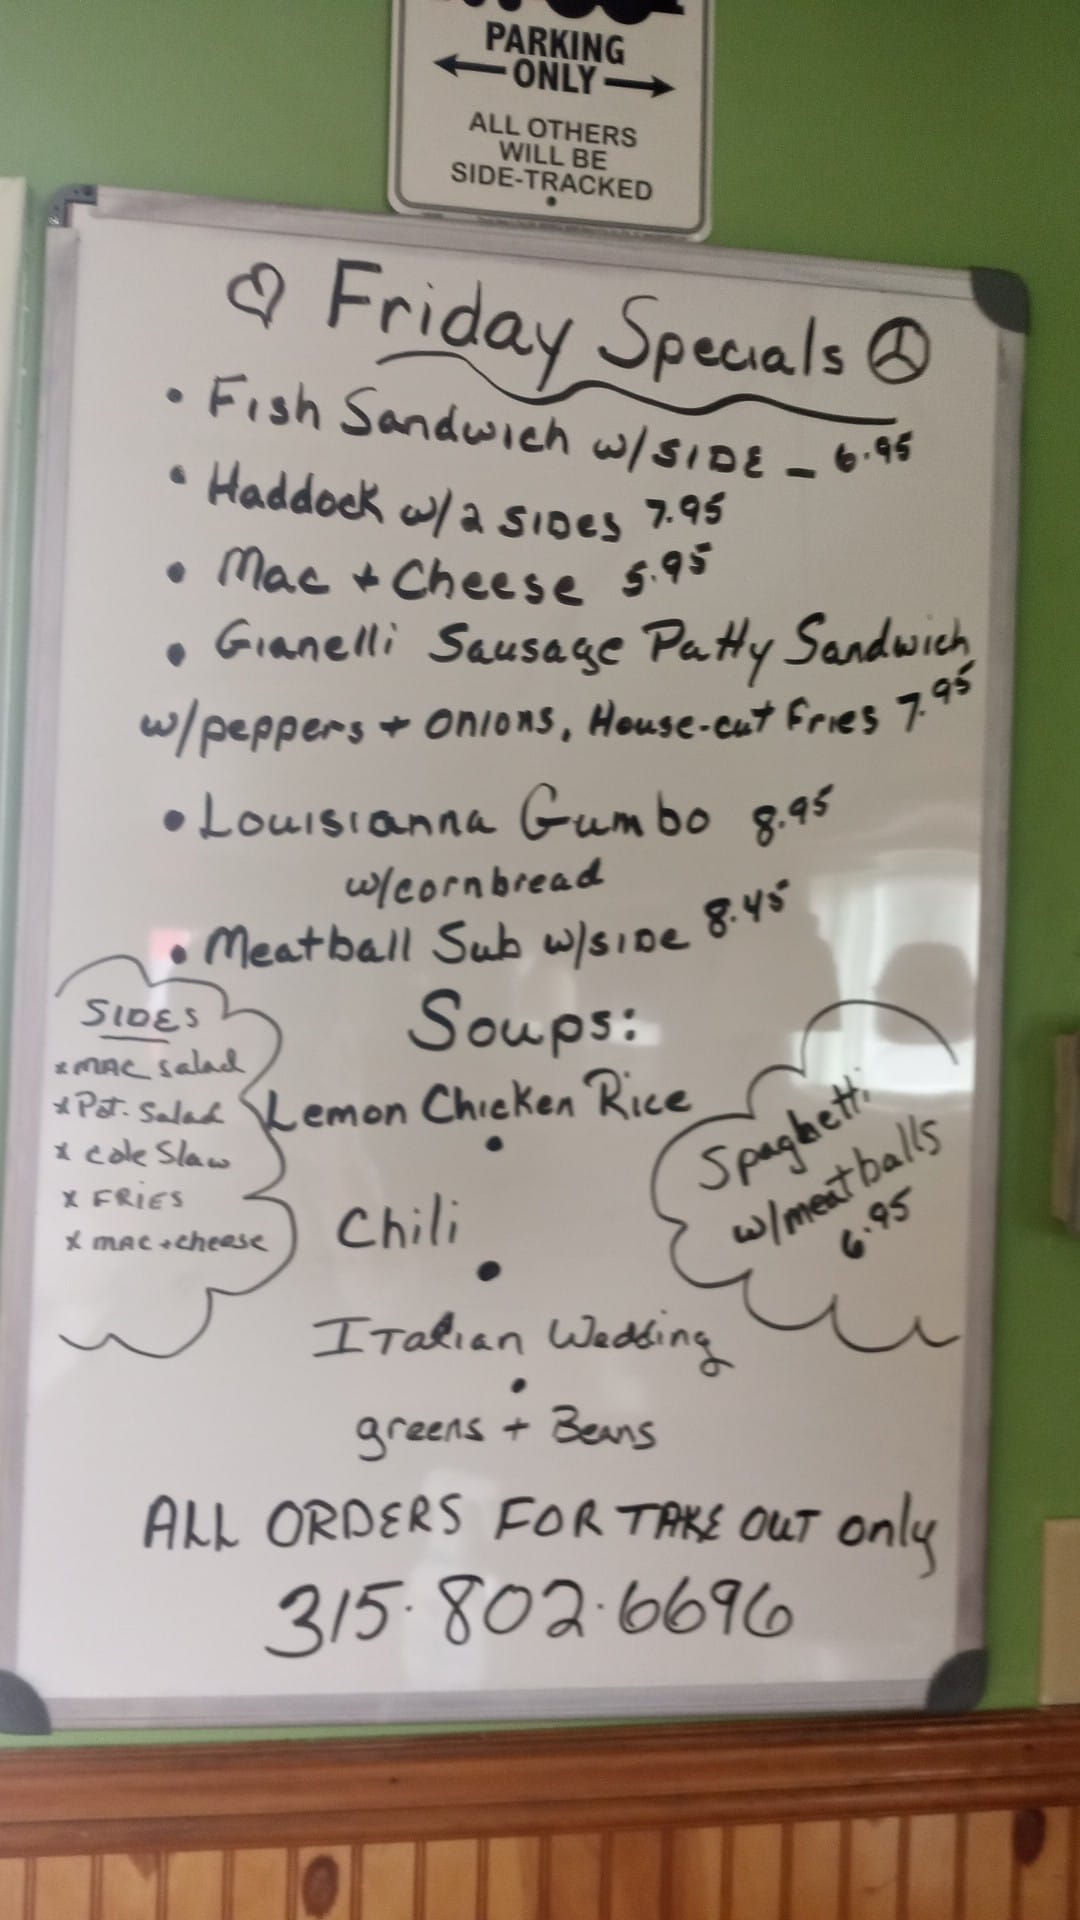 PARKING
ONLY
ALL OTHERS
WILL BE
SIDE-TRACKED
Friday Specials
• Fish Sandwich w/SIDE - 6.95
• Haddock w/2 SIDES 7.95
• Mac + Cheese 5.95
• Gianelli Sausage Patty Sandwich
w/peppers + ONIONS, House-cut Fries 7.95
• Louisianna Gumbo 8.95
w/cornbread
• Meatball Sub w/side 8.45
SIDES
x MAC salad
x Pot. Salad
x cole Slaw
x FRIES
x mac + cheese
Soups:
Lemon Chicken Rice
•
Chili
•
Italian Wedding
•
greens + Beans
Spaghetti
w/meatballs
6.95
ALL ORDERS FOR TAKE OUT only
315.802.6696